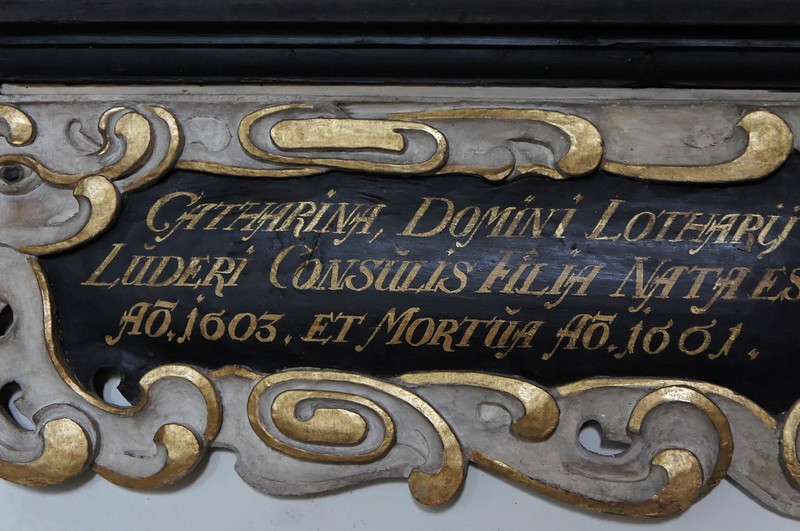 CATHARINA, DOMINI LOTHARIJ
LŬDERI CONSŬLIS FILIA NATA ES
AŌ. 1603. ET MORTŬA AŌ. 1661.